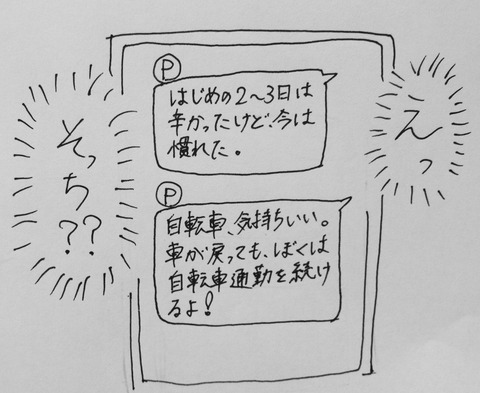 えっ
Ⓟ
はじめの2〜3日は
辛かったけど、今は
慣れた。
Ⓟ
自転車、気持ちいい。
車が戻っても、ぼくは
自転車通勤を続け
るよ!
そっち??